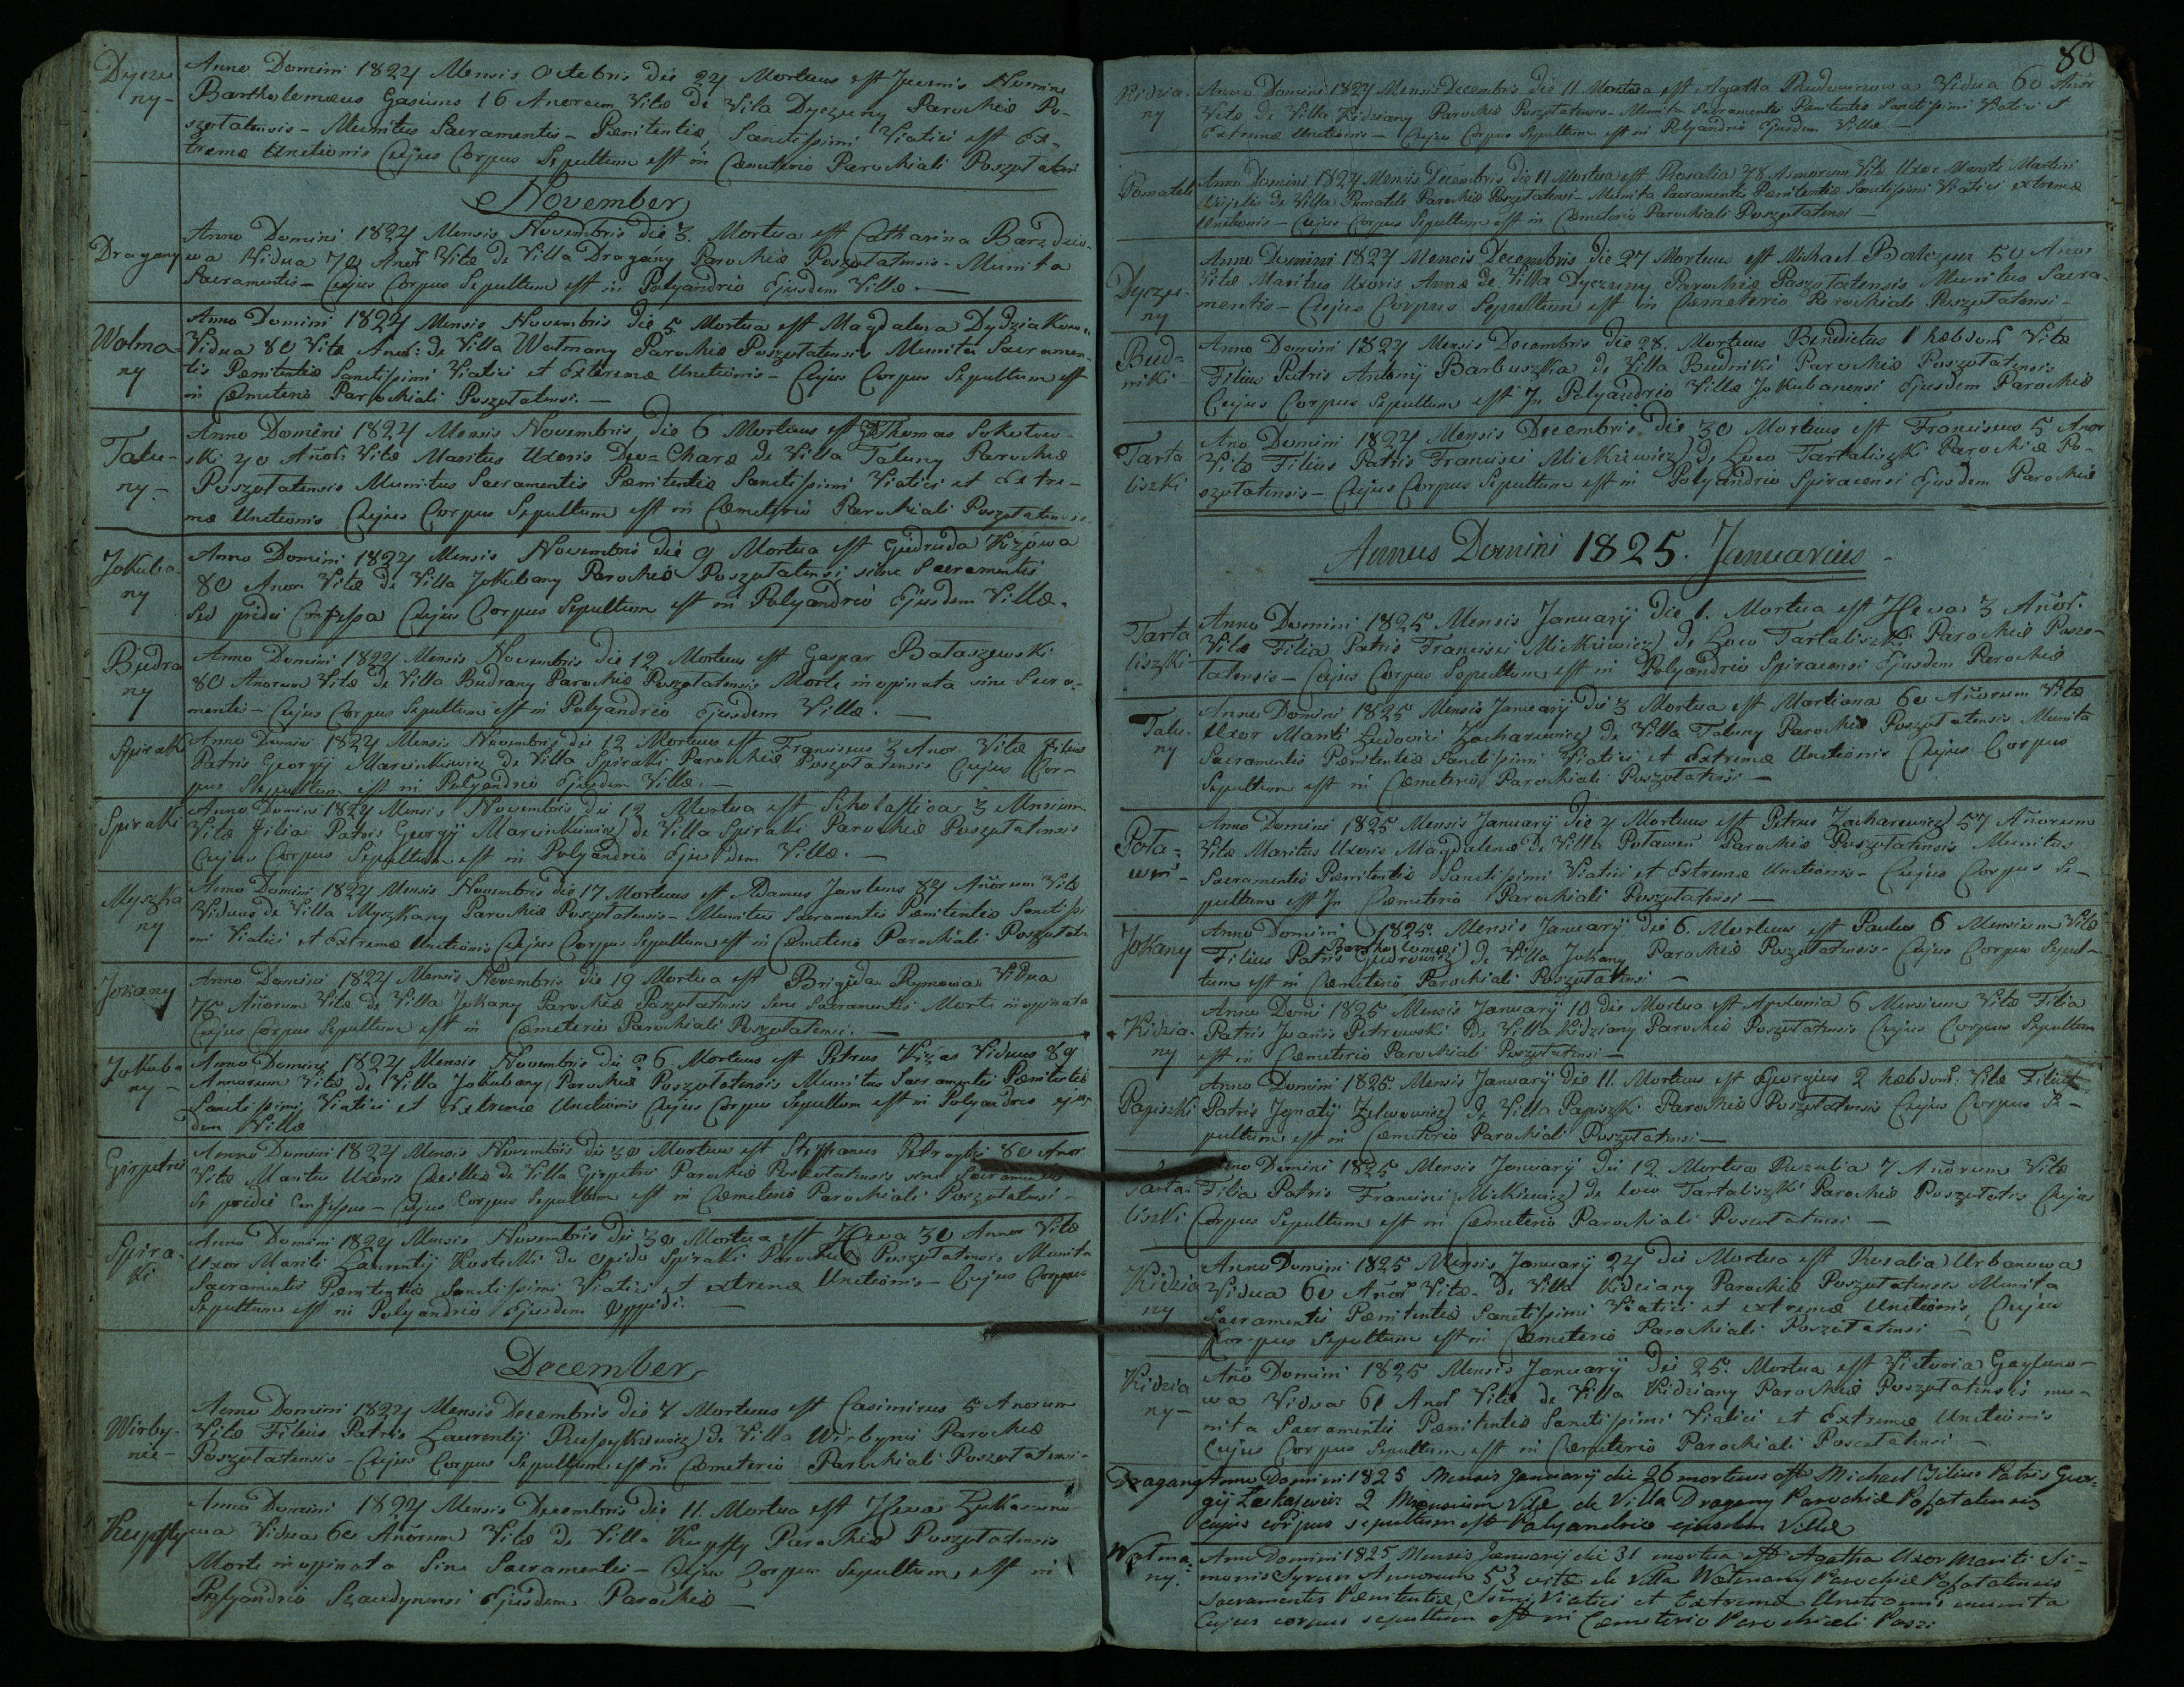 Dyczu
ny -
Anno Domini 1824 Mensis Octobris die 24 Mortuus est Juvenis Nomine
Bartholomæus Gasiuns 16 Anorum Vitæ de Villa Dyczuny Parochiæ Po-
szołatensis - Munitus Sacramentis - Pænitentiæ, Sanctissimi Viatici est Ex-
tremæ Unctionis Cujus Corpus Sepultum est in Cæmeterio Parochiali Poszołatens
November
Dragany
Anno Domini 1824 Mensis Novembris die 3. Mortua est Catharina Barzdzio-
wa Vidua 70 Anor Vitæ de Villa Dragany Parochiæ Poszołatensis - Munita
Sacramentis - Cujus Corpus Sepultum est in Polyandrio Ejusdem Villæ. -
Wołma-
ny
Anno Domini 1824 Mensis Novembris die 5. Mortua est Magdalena Dydziakowa
Vidua 80 Vitæ Anor: de Villa Wołmany Parochiæ Poszołatensis Munita Sacramen-
tis Pænitentiæ Sanctissimi Viatici et Extremæ Unctionis - Cujus Corpus Sepultum est
in Cæmeterio Parochiali Poszołatensi. -
Talu-
ny -
Anno Domini 1824 Mensis Novembris die 6 Mortuus est Thomas Sokołow-
ski 40 Añor: Vitæ Maritus Uxoris Doro=Charæ de Villa Taluny Parochiæ
Poszołatensis Munitus Sacramentis Pænitentiæ Sanctissimi Viatici et Extre-
mæ Unctionis Cujus Corpus Sepultum est in Cæmeterio Parochiali Poszołatensi.
Jokuba-
ny
Anno Domini 1824 Mensis Novembris die 9 Mortua est Giedruda Kizowa
80 Anor Vitæ de Villa Jokubany Parochiæ Poszołatensi, sine Sacramentis
Sed pridie Confessa Cujus Corpus Sepultum est in Polyandrio Ejusdem Villæ.
Budra
ny
Anno Domini 1824 Mensis Novembris die 12 Mortuus est Gaspar Bałaszewski
80 Anorum Vitæ de Villa Budrany Parochiæ Poszołatensis Morte inopinata sine Sacra-
mentis - Cujus Corpus Sepultum est in Polyandrio Ejusdem Villæ. -
Spiraki
Anno Domini 1824 Mensis Novembris die 12 Mortuus est Franciscus 3 Anor. Vitæ Filius
Patris Georgij Marcinkiewicz de Villa Spiraki Parochiæ Poszołatensis Cujus Cor-
pus Sepultum est in Polyandrio Ejusdem Villæ. -
Spiraki
Anno Domini 1824 Mensis Novembris die 12 Mortua est Scholastica 3 Mensium
Vitæ Filia Patris Georgij Marcinkiewicz de Villa Spiraki Parochiæ Poszołatensis
Cujus Corpus Sepultum est in Polyandrio Ejusdem Villæ. -
Myszka
ny
Anno Domini 1824 Mensis Novembris die 17 Mortuus est Adamus 84 Añorum Vitæ
Viduus de Villa Myszkany Parochiæ Poszołatensis - Munitus Sacramentis Pænitentiæ Sanctissi
mi Viatici et Extremæ Unctionis Cujus Corpus Sepultum est in Cæmeterio Parochiali Poszołaten
Jokany
Anno Domini 1824 Mensis Novembris die 19 Mortua est Brigida Rymowa Vidua
75 Añorum Vitæ de Villa Jokany Parochiæ Poszołatensis Sine Sacramentis Morte inopinata
Cujus Corpus Sepultum est in Cæmeterio Parochiali Poszołatensi. -
Jokuba
ny -
Anno Domini 1824 Mensis Novembris die 26 Mortuus est Petrus Kizas Viduus 89
Annorum Vitæ de Villa Jokubany Parochiæ Poszołatensis Munitus Sacramentis Pænitentiæ
Sanctissimi Viatici et Extremæ Unctionis Cujus Corpus Sepultum est in Polyandrio ejus
dem Villæ
Girpetrii
Anno Domini 1824 Mensis Novembris die 30 Mortuus est Stephanus 80 Anor
Vitæ Maritus Uxoris Cæcilliæ de Villa Girpetrii Parochiæ Poszołatensis sine Sacramentis
Se pridie Confessus - Cujus Corpus Sepultum est in Cæmeterio Parochiali Poszołatensi -
Spira-
ki
Anno Domini 1824 Mensis Novembris die 30 Mortua est Heva 30 Annor Vitæ
Uxor Mariti Laurentij Kostecki de opido Spiraki Parochiæ Poszołatensis Munita
Sacramentis Pænitentiæ Sanctissimi Viatici et extremæ Unctionis - Cujus Corpus
Sepultum est in Polyandrio Ejusdem Oppidi. -
December
Wirby-
nie -
Anno Domini 1824 Mensis Decembris die 7 Mortuus est Casimirus 5 Anorum
Vitæ Filius Patris Laurentij de Villa Wirbynii Parochiæ
Poszołatensis - Cujus Corpus Sepultum est in Cæmeterio Parochiali Poszołatensi -
Kupsty
Anno Domini 1824 Mensis Decembris die 11. Mortua est Heva Łukaszuno
wa Vidua 60 Añorum Vitæ de Villa Kupsty Parochiæ Poszołatensis
Morte inopinata Sine Sacramentis - Cujus Corpus Sepultum est in
Polyandrio Szaudynensi Ejusdem Parochiæ -
80
Kidzia-
ny
Anno Domini 1824 Mensis Decembris die 11 Mortua est Agatha Vidua 60 Anor
Vitæ de Villa Kidziany Parochiæ Poszołatensis - Munita Sacramentis Pænitentiæ Sanctissimi Viatici et
Extremæ Unctionis - Cujus Corpus Sepultum est in Polyandrio Ejusdem Villæ -
Pomatele
Anno Domini 1824 Mensis Decembris die 11 Mortua est Rosalia 78 Annorum Vitæ Uxor Mariti Martini
de Villa Pomatele Parochiæ Poszołatensi - Munita Sacramentis Pænitentiæ Sanctissimi Viatici extremæ
Unctionis - Cujus Corpus Sepultum est in Cæmeterio Parochiali Poszołatensi -
Dyczu-
ny
Anno Domini 1824 Mensis Decembris die 27 Mortuus est Michael 50 Anor
Vitæ Maritus Uxoris Annæ de Villa Dyczuny Parochiæ Poszołatensis Munitus Sacra-
mentis - Cujus Corpus Sepultum est in Cæmeterio Parochiali Poszołatensi -
Bud=
niki -
Anno Domini 1824 Mensis Decembris die 28. Mortuus Benedictus 1 hæbdom Vitæ
Filius Patris Antonij Barbuszka de Villa Budniki Parochiæ Poszołatensis
Cujus Corpus Sepultum est In Polyandrio Villæ Jokubanensi Ejusdem Parochiæ
Tarta
liszki
Ano Domini 1824 Mensis Decembris die 30 Mortuus est Franciscus 5 Anor
Vitæ Filius Patris Francisci Mickiewicz de Loco Tartaliszki Parochiæ Po-
szołatensis - Cujus Corpus Sepultum est in Polyandrio Spiracensi Ejusdem Parochiæ
Annus Domini 1825. Januarius -
Tarta
liszki
Anno Domini 1825 Mensis Januarij die 1. Mortua est Heva 3 Añor.
Vitæ Filia Patris Francisci Mickiewicz de Loco Tartaliszki Parochiæ Poszo-
łatensis - Cujus Corpus Sepultum est in Polyandrio Spiracensi Ejusdem Parochiæ
Talu-
ny
Anno Domini 1825 Mensis Januarij die 3 Mortua est Martiana 60 Añorum Vitæ
Uxor Mariti Ludovici Zacharewicz de Villa Taluny Parochiæ Poszołatensis Munita
Sacramentis Pænitentiæ Sanctissimi Viatici et Extremæ Unctionis Cujus Corpus
Sepultum est in Cæmeterio Parochiali Poszołatensi -
Pota-
weń -
Anno Domini 1825 Mensis Januarij die 4 Mortuus est Petrus Zacharewicz 57 Añorum
Vitæ Maritus Uxoris Magdalenæ de Villa Potaweń Parochiæ Poszołatensis Munitus
Sacramentis Pænitentiæ Sanctissimi Viatici et Extremæ Unctionis - Cujus Corpus Se-
pultum est In Cæmeterio Parochiali Poszołatensi -
Jokany
Anno Domini 1825. Mensis Januarij die 6. Mortuus est Paulus 6 Mensium Vitæ
Bartholomæi
Filius Patris Giedrowicz de Villa Jokany Parochiæ Poszołatensis - Cujus Corpus Sepul-
tum est in Cæmeterio Parochiali Poszołatensi -
Kidzia-
ny
Anno Domi 1825 Mensis Januarij 10 die Mortua est Apolonia 6 Mensium Vitæ Filia
Patris Joanis Petrowski de Villa Kidziany Parochiæ Poszołatensis Cujus Corpus Sepultum
est in Cæmeterio Parochiali Poszołatensi -
Papiszki
Anno Domini 1825 Mensis Januarij die 11. Mortuus est Georgius 2 hæbdom: Vitæ Filius
Patris Jgnatij Zelwowicz de Villa Papiszki Parochiæ Poszołatensis Cujus Corpus Se-
pultum est in Cæmeterio Parochiali Poszołatensi -
Tarta-
liszki
Anno Domini 1825 Mensis Januarij die 12. Mortua Rozalia 7 Añorum Vitæ
Filia Patris Francisci Mickiewicz de loco Tartaliszki Parochiæ Poszołatis Cujus
Corpus Sepultum est in Cæmeterio Parochiali Poszołatensi -
Kidzia
ny
Anno Domini 1825 Mensis Januarij 24 die Mortua est Rosalia Urbanowa
Vidua 60 Añor Vitæ - de Villa Kidziany Parochiæ Poszołatensis Munita
Sacramentis Pænitentiæ Sanctissimi Viatici et extremæ Unctionis, Cujus
Corpus Sepultum est in Cæmeterio Parochiali Poszołatensi -
Kidzia
ny -
Año Domini 1825 Mensis Januarij die 25. Mortua est Victoria Gayluno-
wa Vidua 60 Anor Vitæ de Villa Kidziany Parochiæ Poszołatensis mu-
nita Sacramentis Pænitentiæ Sanctissimi Viatici et Extremæ Unctionis
Cujus Corpus Sepultum est in Cæmeterio Parochiali Poszołatensi -
Dragany
Anno Domini 1825 Mensis Januarij die 26 mortuus est Michael Filius Patris Geor-
gij Łukaszewicz 2 Mensium Vitæ de Villa Dragany Parochiæ Poszołatensis
cujus corpus sepultum est Polyandrio ejusdem Villæ
Wołma-
ny.
Anno Domini 1825 Mensis Januarij die 31 mortua est Agatha Uxor Mariti Si-
monis Syrun Annorum 53 vitæ de Villa Wołmany Parochiæ Poszołatensis
Sacramentis Pænitentiæ, Ssimi Viatici et Extremæ Unctionis munita
Cujus corpus sepultum est in Cæmeterio Parochiali Posz: